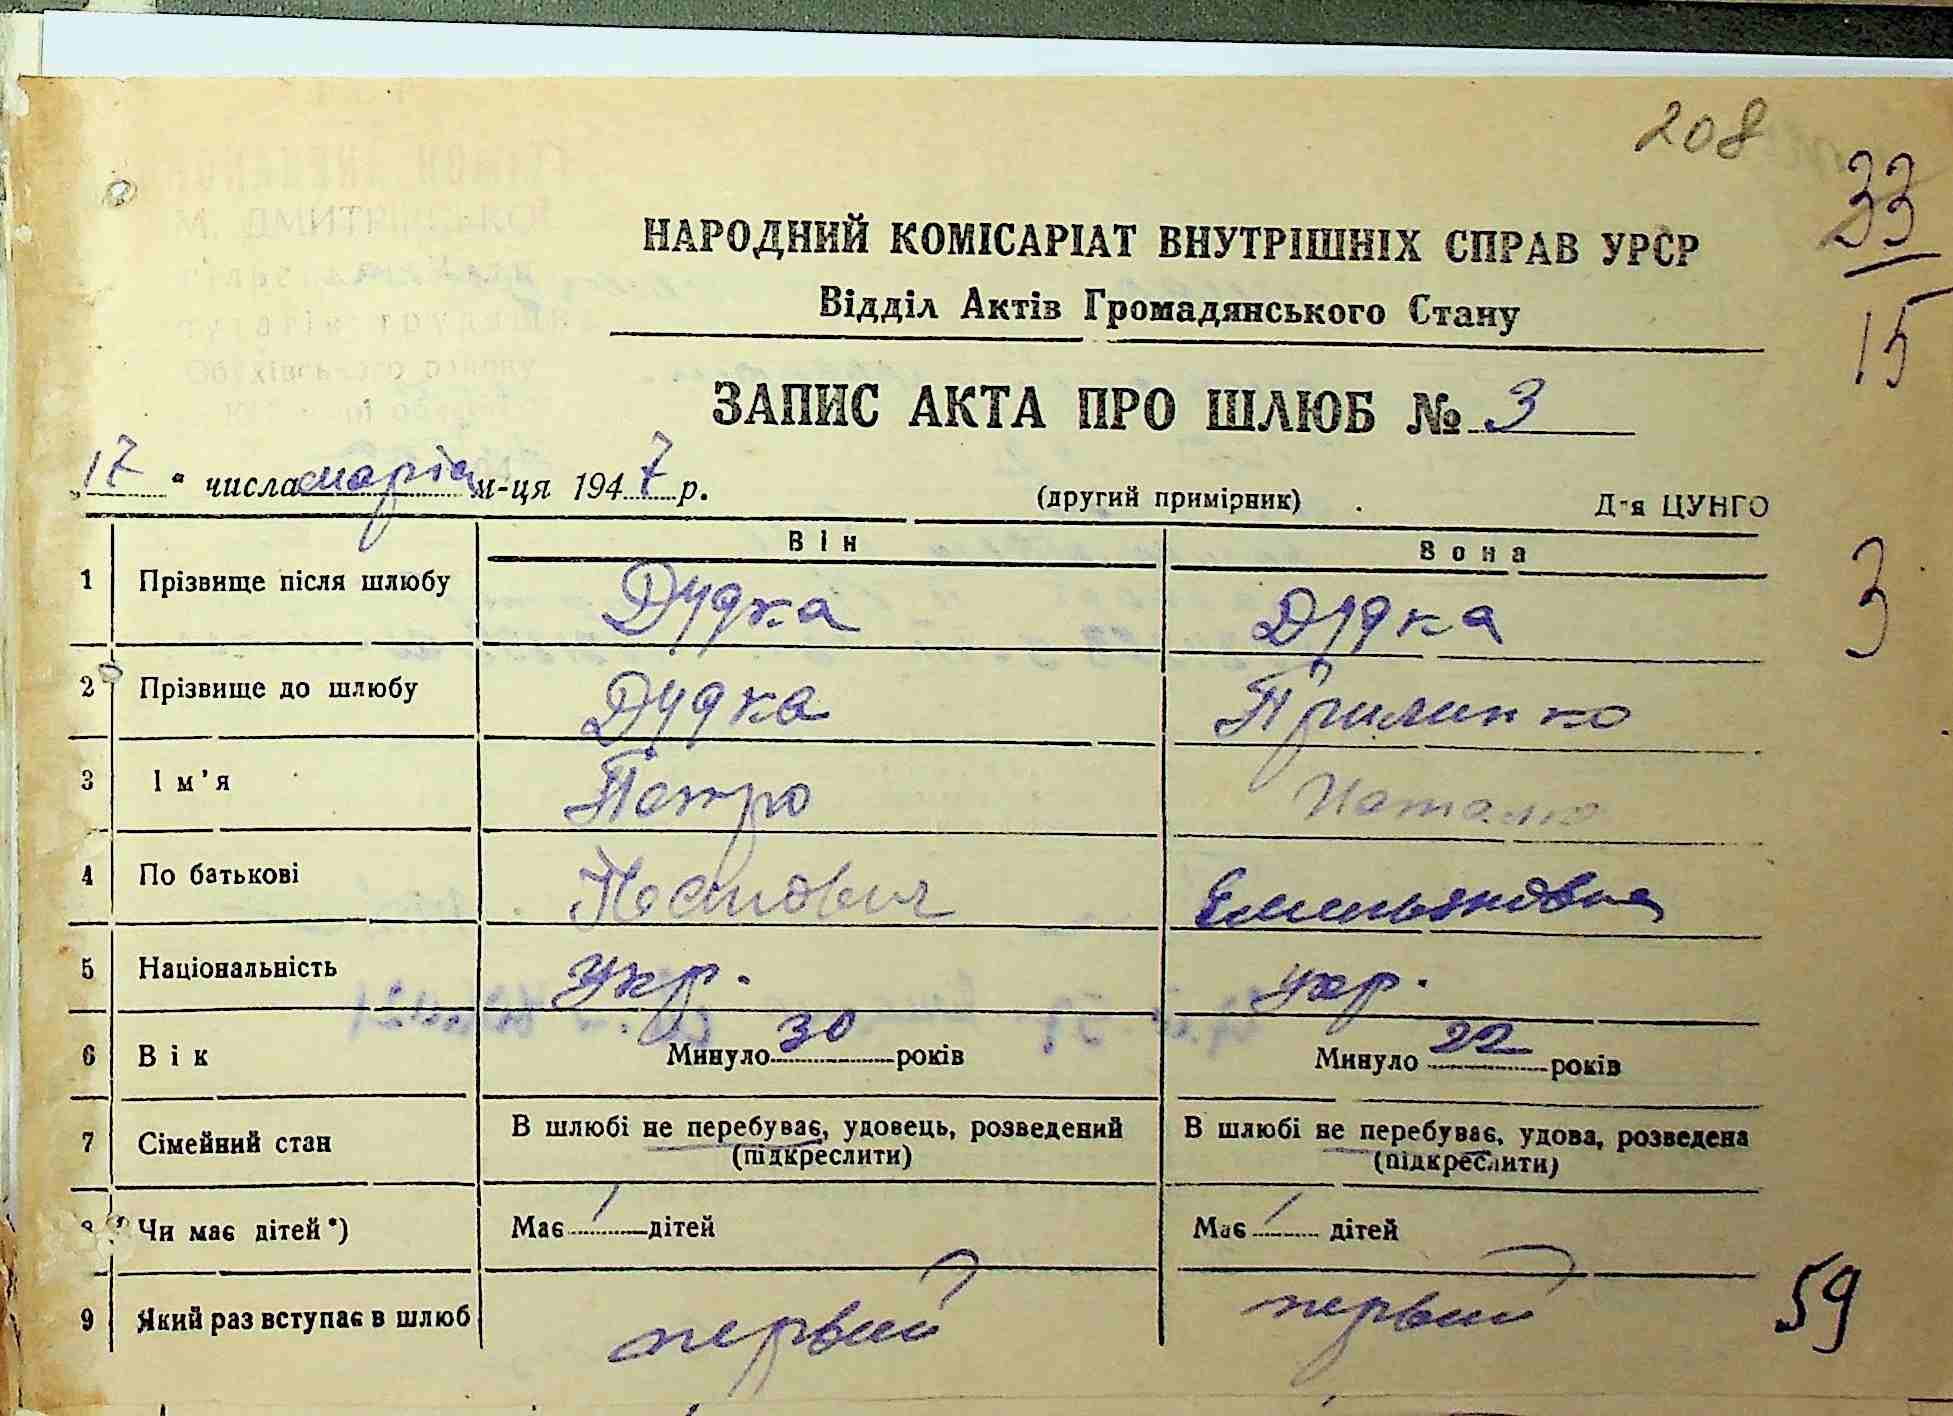 208
33
33
15
НАРОДНИЙ КОМІСАРІАТ ВНУТРІШНІХ СПРАВ УРСР
Відділ Актів Громадянського Стану
ЗАПИС АКТА ПРО ШЛЮБ № 3
„17“ числа марта м-ця 1947 р.
(другий примірник)
Д-я ЦУНГО
Він Вона
1 Прізвище після шлюбу Дудка Дудка
3
2 Прізвище до шлюбу Дудка
3 Ім'я Петро Наталка
4 По батькові Емельяновна
5 Національність укр. укр.
6 Вік Минуло 30 років Минуло 22 років
7 Сімейний стан В шлюбі не перебуває, удовець, розведений (підкреслити) В шлюбі не перебуває, удова, розведена (підкреслити)
8 Чи має дітей*) Має / дітей Має / дітей
9 Який раз вступає в шлюб первий первий
59